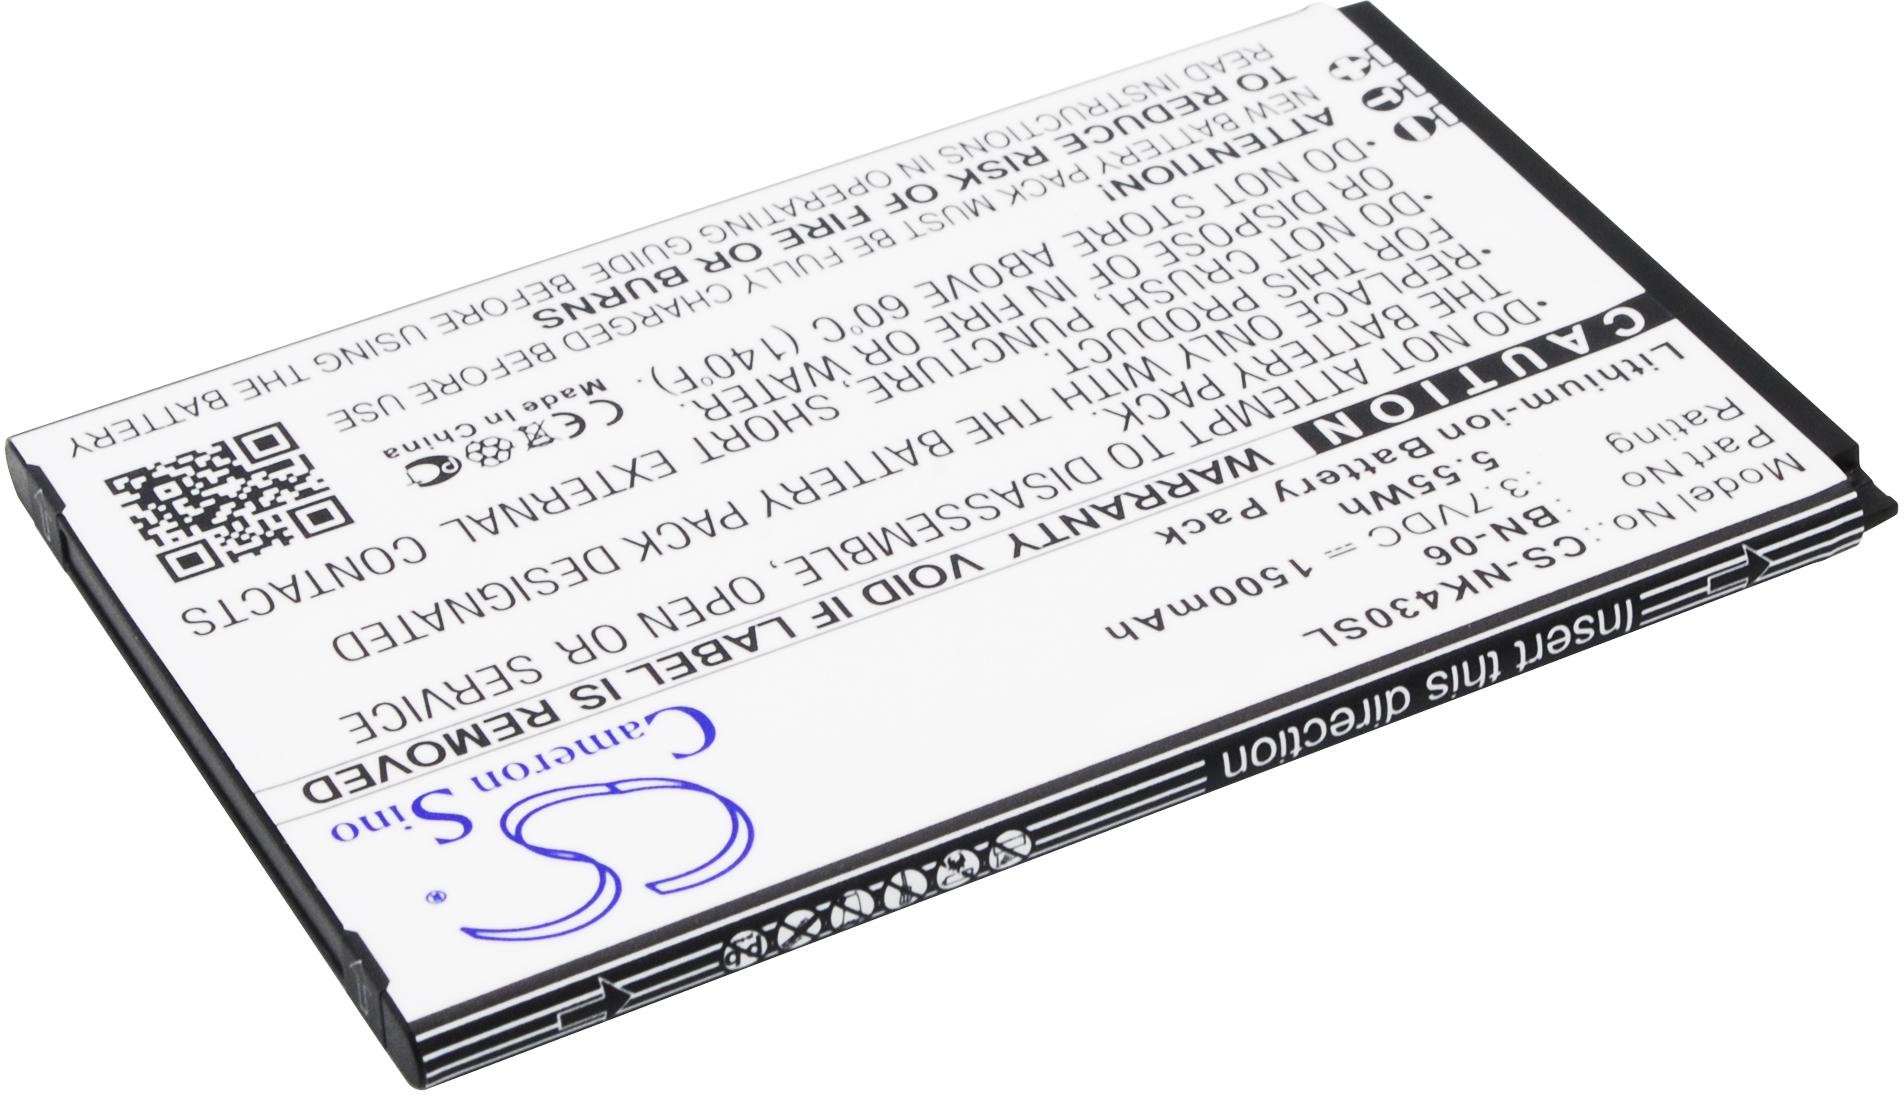 Cameron Sino
®
Model No : CS-NK430SL
Part No : BN-06
Rating : 3.7VDC 1500mAh
5.55Wh
Lithium-ion Battery Pack
CAUTION WARRANTY VOID IF LABEL IS REMOVED
•DO NOT ATTEMPT TO DISASSEMBLE, OPEN OR SERVICE
THE BATTERY PACK.
•REPLACE ONLY WITH THE BATTERY PACK DESIGNATED
FOR THIS PRODUCT.
•DO NOT CRUSH, PUNCTURE, SHORT EXTERNAL CONTACTS
OR DISPOSE OF IN FIRE OR WATER.
•DO NOT STORE ABOVE 60°C (140°F).
ATTENTION!
NEW BATTERY PACK MUST BE FULLY CHARGED BEFORE USE
TO REDUCE RISK OF FIRE OR BURNS
READ INSTRUCTIONS IN OPERATING GUIDE BEFORE USING THE BATTERY
CE
Made in China
Insert this direction